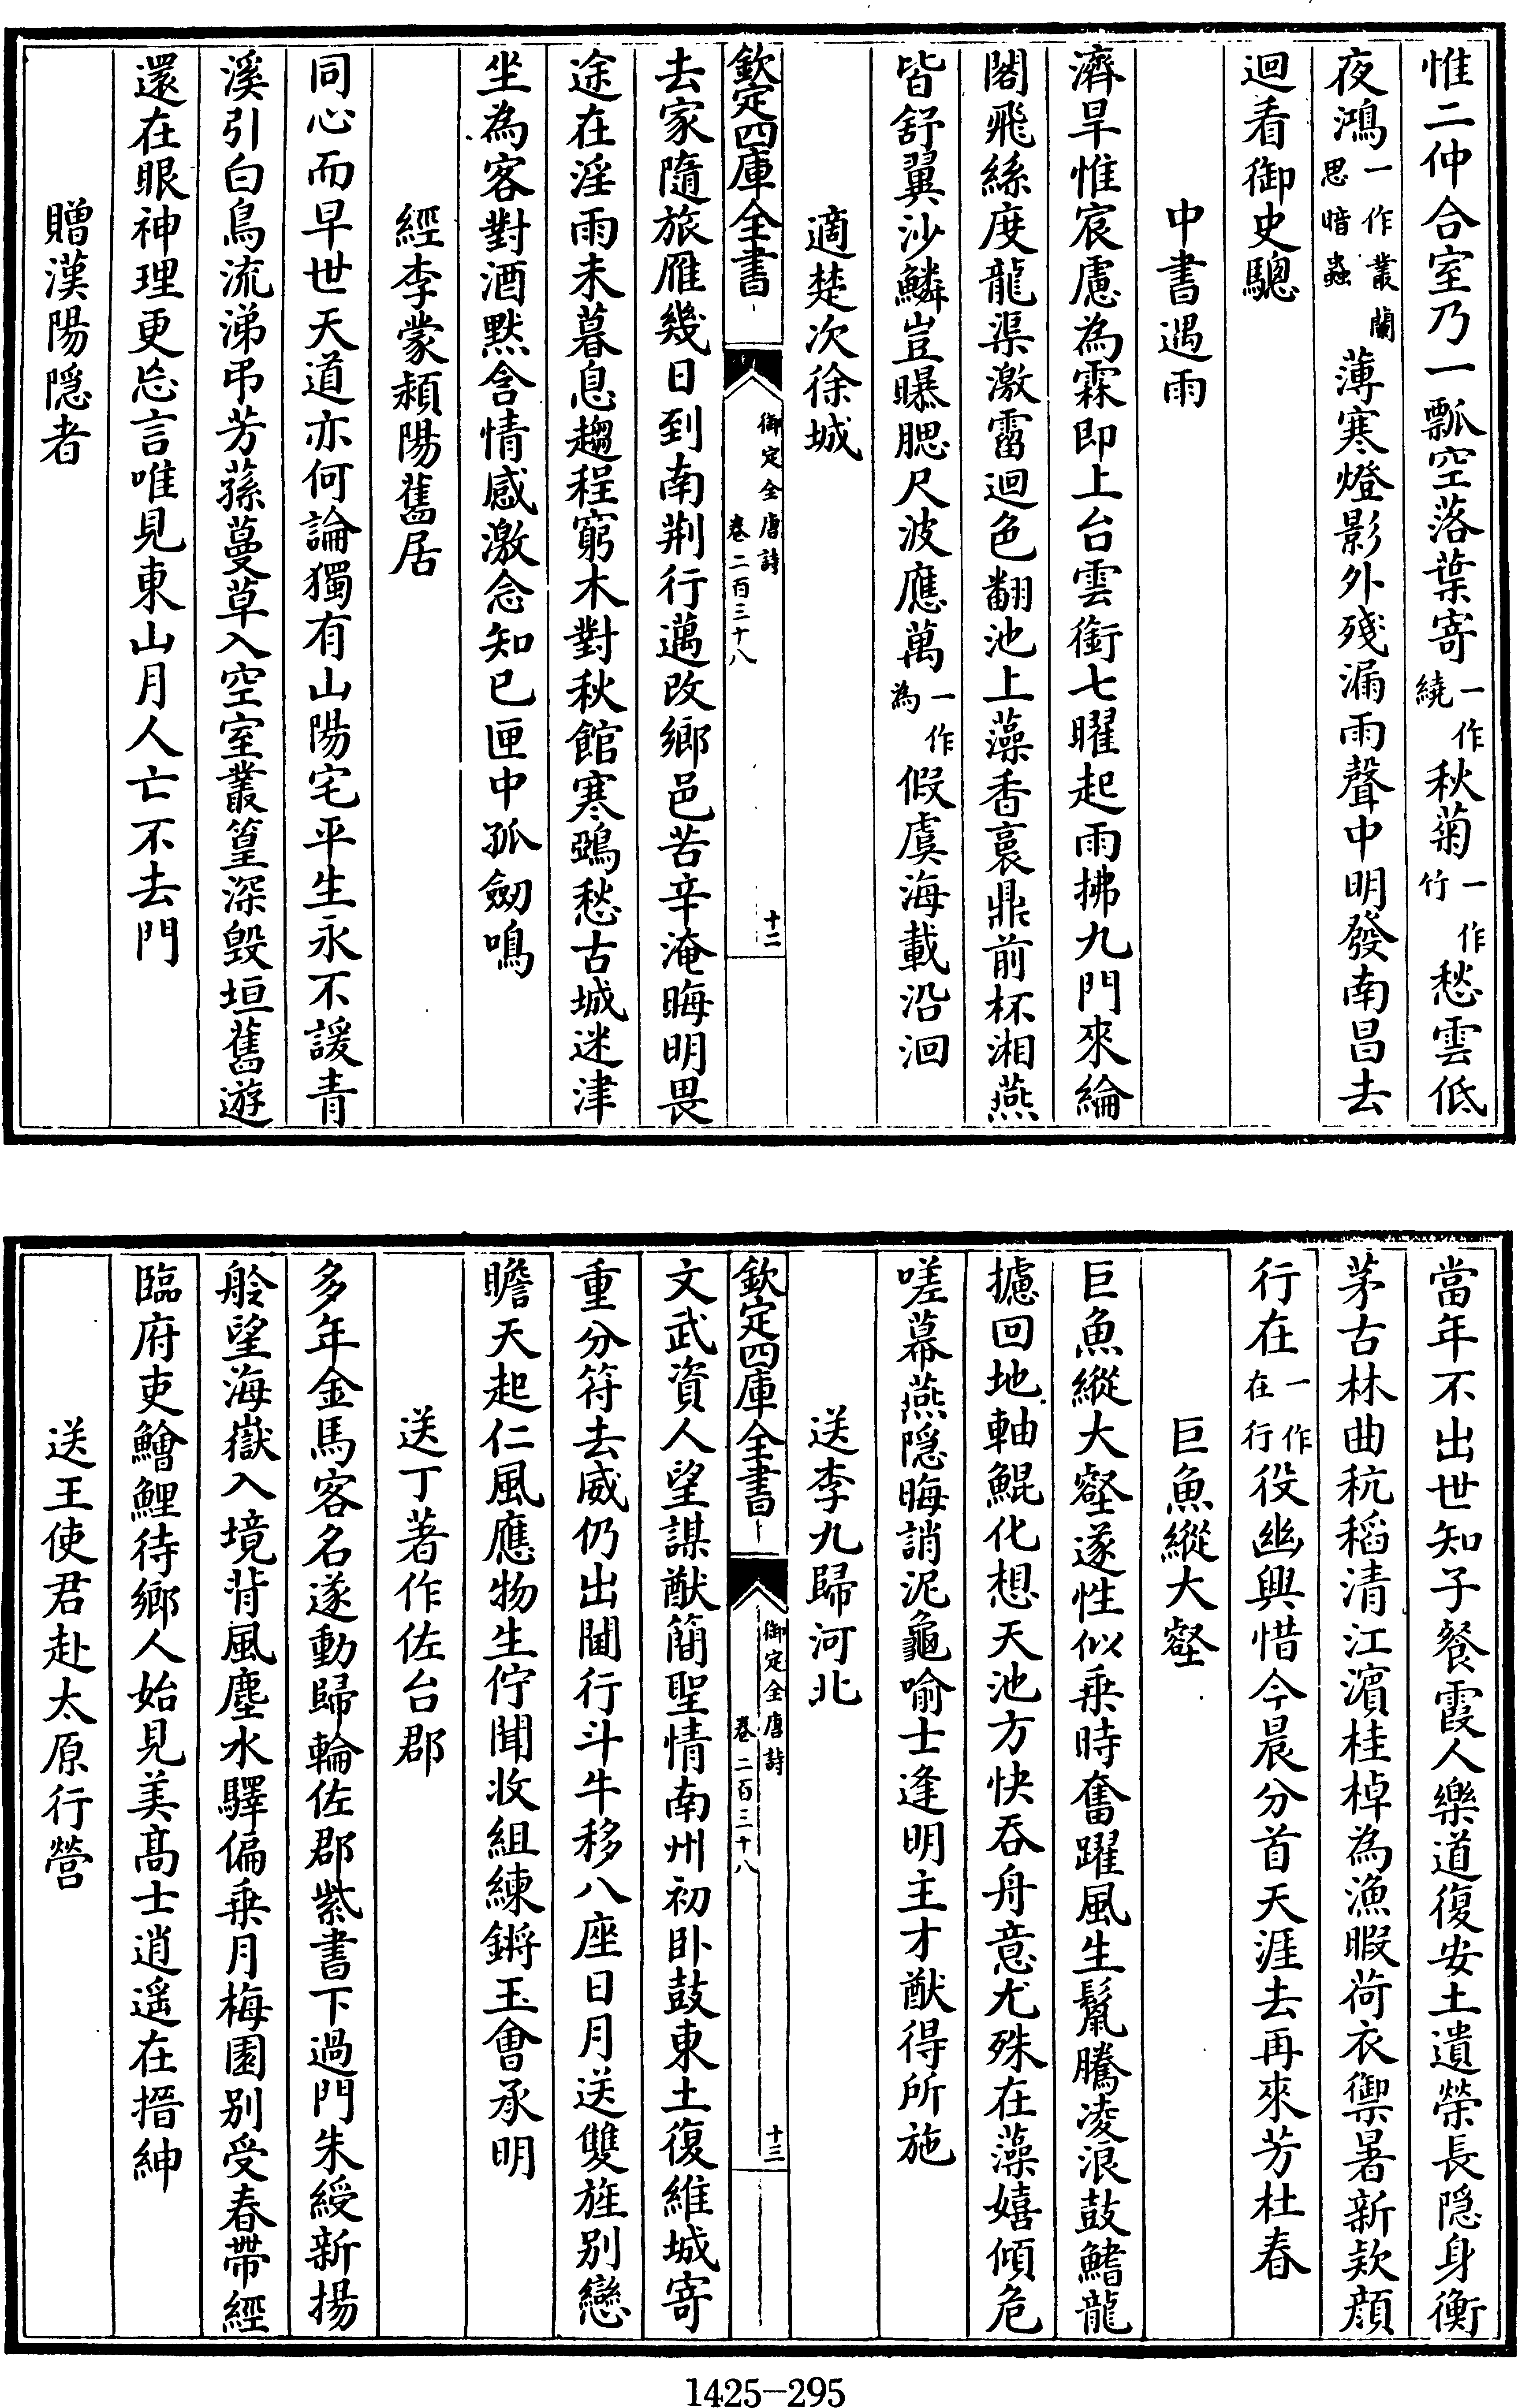 惟二仲合室乃一瓢空落葉寄一作繞秋菊一作竹愁雲低
夜鴻一作叢蘭思暗蟲薄寒燈影外殘漏雨聲中明發南昌去
迴看御史驄
中書遇雨
濟旱惟宸慮為霖即上台雲銜七曜起雨拂九門來綸
閣飛絲度龍渠激霤迴色翻池上藻香裛鼎前杯湘燕
皆舒翼沙鱗豈曝腮尺波應萬一作為假虞海載沿洄
適楚次徐城
欽定四庫全書
御定全唐詩
卷二百三十八
十二
去家隨旅雁幾日到南荆行邁改鄉邑苦辛淹晦明畏
途在淫雨未暮息趨程窮木對秋館寒鵶愁古城迷津
坐為客對酒黙含情感激念知已匣中孤劒鳴
經李蒙潁陽舊居
同心而早世天道亦何論獨有山陽宅平生永不諼青
溪引白鳥流涕弔芳蓀蔓草入空室叢篁深毀垣舊遊
還在眼神理更忘言唯見東山月人亡不去門
贈漢陽隠者
當年不出世知子餐霞人樂道復安土遺榮長隠身衡
茅古林曲秔稻清江濵桂棹為漁暇荷衣禦暑新欵顔
行在一作在行役幽興惜今晨分首天涯去再來芳杜春
巨魚縱大壑
巨魚縱大壑遂性似乗時奮躍風生鬛騰凌浪鼓鰭龍
攄回地軸鯤化想天池方快吞舟意尤殊在藻嬉傾危
嗟幕燕隠晦誚泥龜喻士逢明主才猷得所施
送李九歸河北
欽定四庫全書
御定全唐詩
卷二百三十八
十三
文武資人望謀猷簡聖情南州初卧鼓東土復維城寄
重分符去威仍出閫行斗牛移八座日月送雙旌别戀
瞻天起仁風應物生佇聞收組練鏘玉㑹承明
送丁著作佐台郡
多年金馬客名遂動歸輪佐郡紫書下過門朱綬新揚
舲望海嶽入境背風塵水驛偏乗月梅園别受春帶經
臨府吏鱠鯉待鄉人始見美髙士逍遥在搢紳
送王使君赴太原行營
1425-295